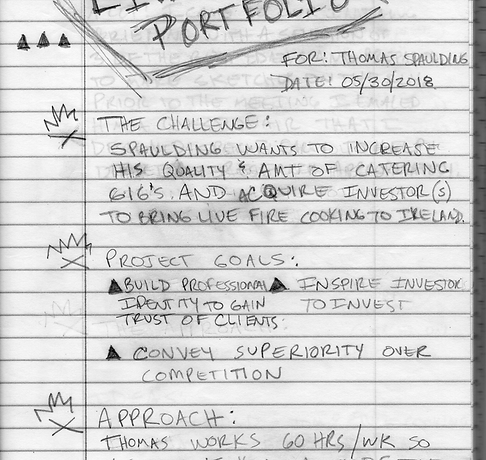 PORTFOLIO
FOR: THOMAS SPAULDING
DATE: 05/30/2018
THE CHALLENGE:
SPAULDING WANTS TO INCREASE
HIS QUALITY & AMT OF CATERING
GIG'S AND ACQUIRE INVESTOR(S)
TO BRING LIVE FIRE COOKING TO IRELAND.
PROJECT GOALS:
▲ BUILD PROFESSIONAL
IDENTITY TO GAIN
TRUST OF CLIENTS.
▲ INSPIRE INVESTOR
TO INVEST
▲ CONVEY SUPERIORITY OVER
COMPETITION
APPROACH:
THOMAS WORKS 60 HRS/WK SO